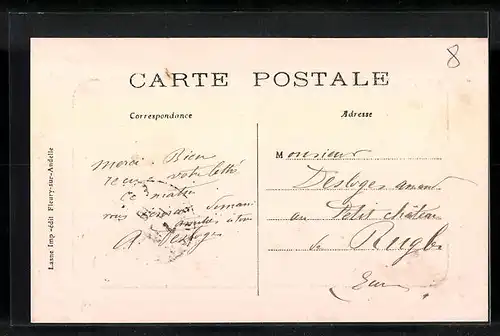 8
CARTE POSTALE
Correspondance
Adresse
Lasne Imp -édit Fleury-sur-Andelle
merci. Bien
votre lettre
ce matin
A. Desloges
Monsieur
Desloges
au Petit château
de Rugle
Eure